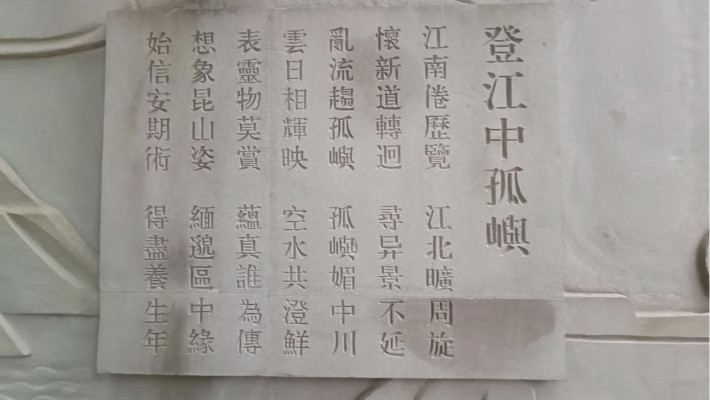 登江中孤嶼
江南倦歷覽 江北曠周旋
懷新道轉迴 尋异景不延
亂流趨孤嶼 孤嶼媚中川
雲日相輝映 空水共澄鮮
表靈物莫賞 蘊真誰為傳
想象昆山姿 緬邈區中緣
始信安期術 得盡養生年